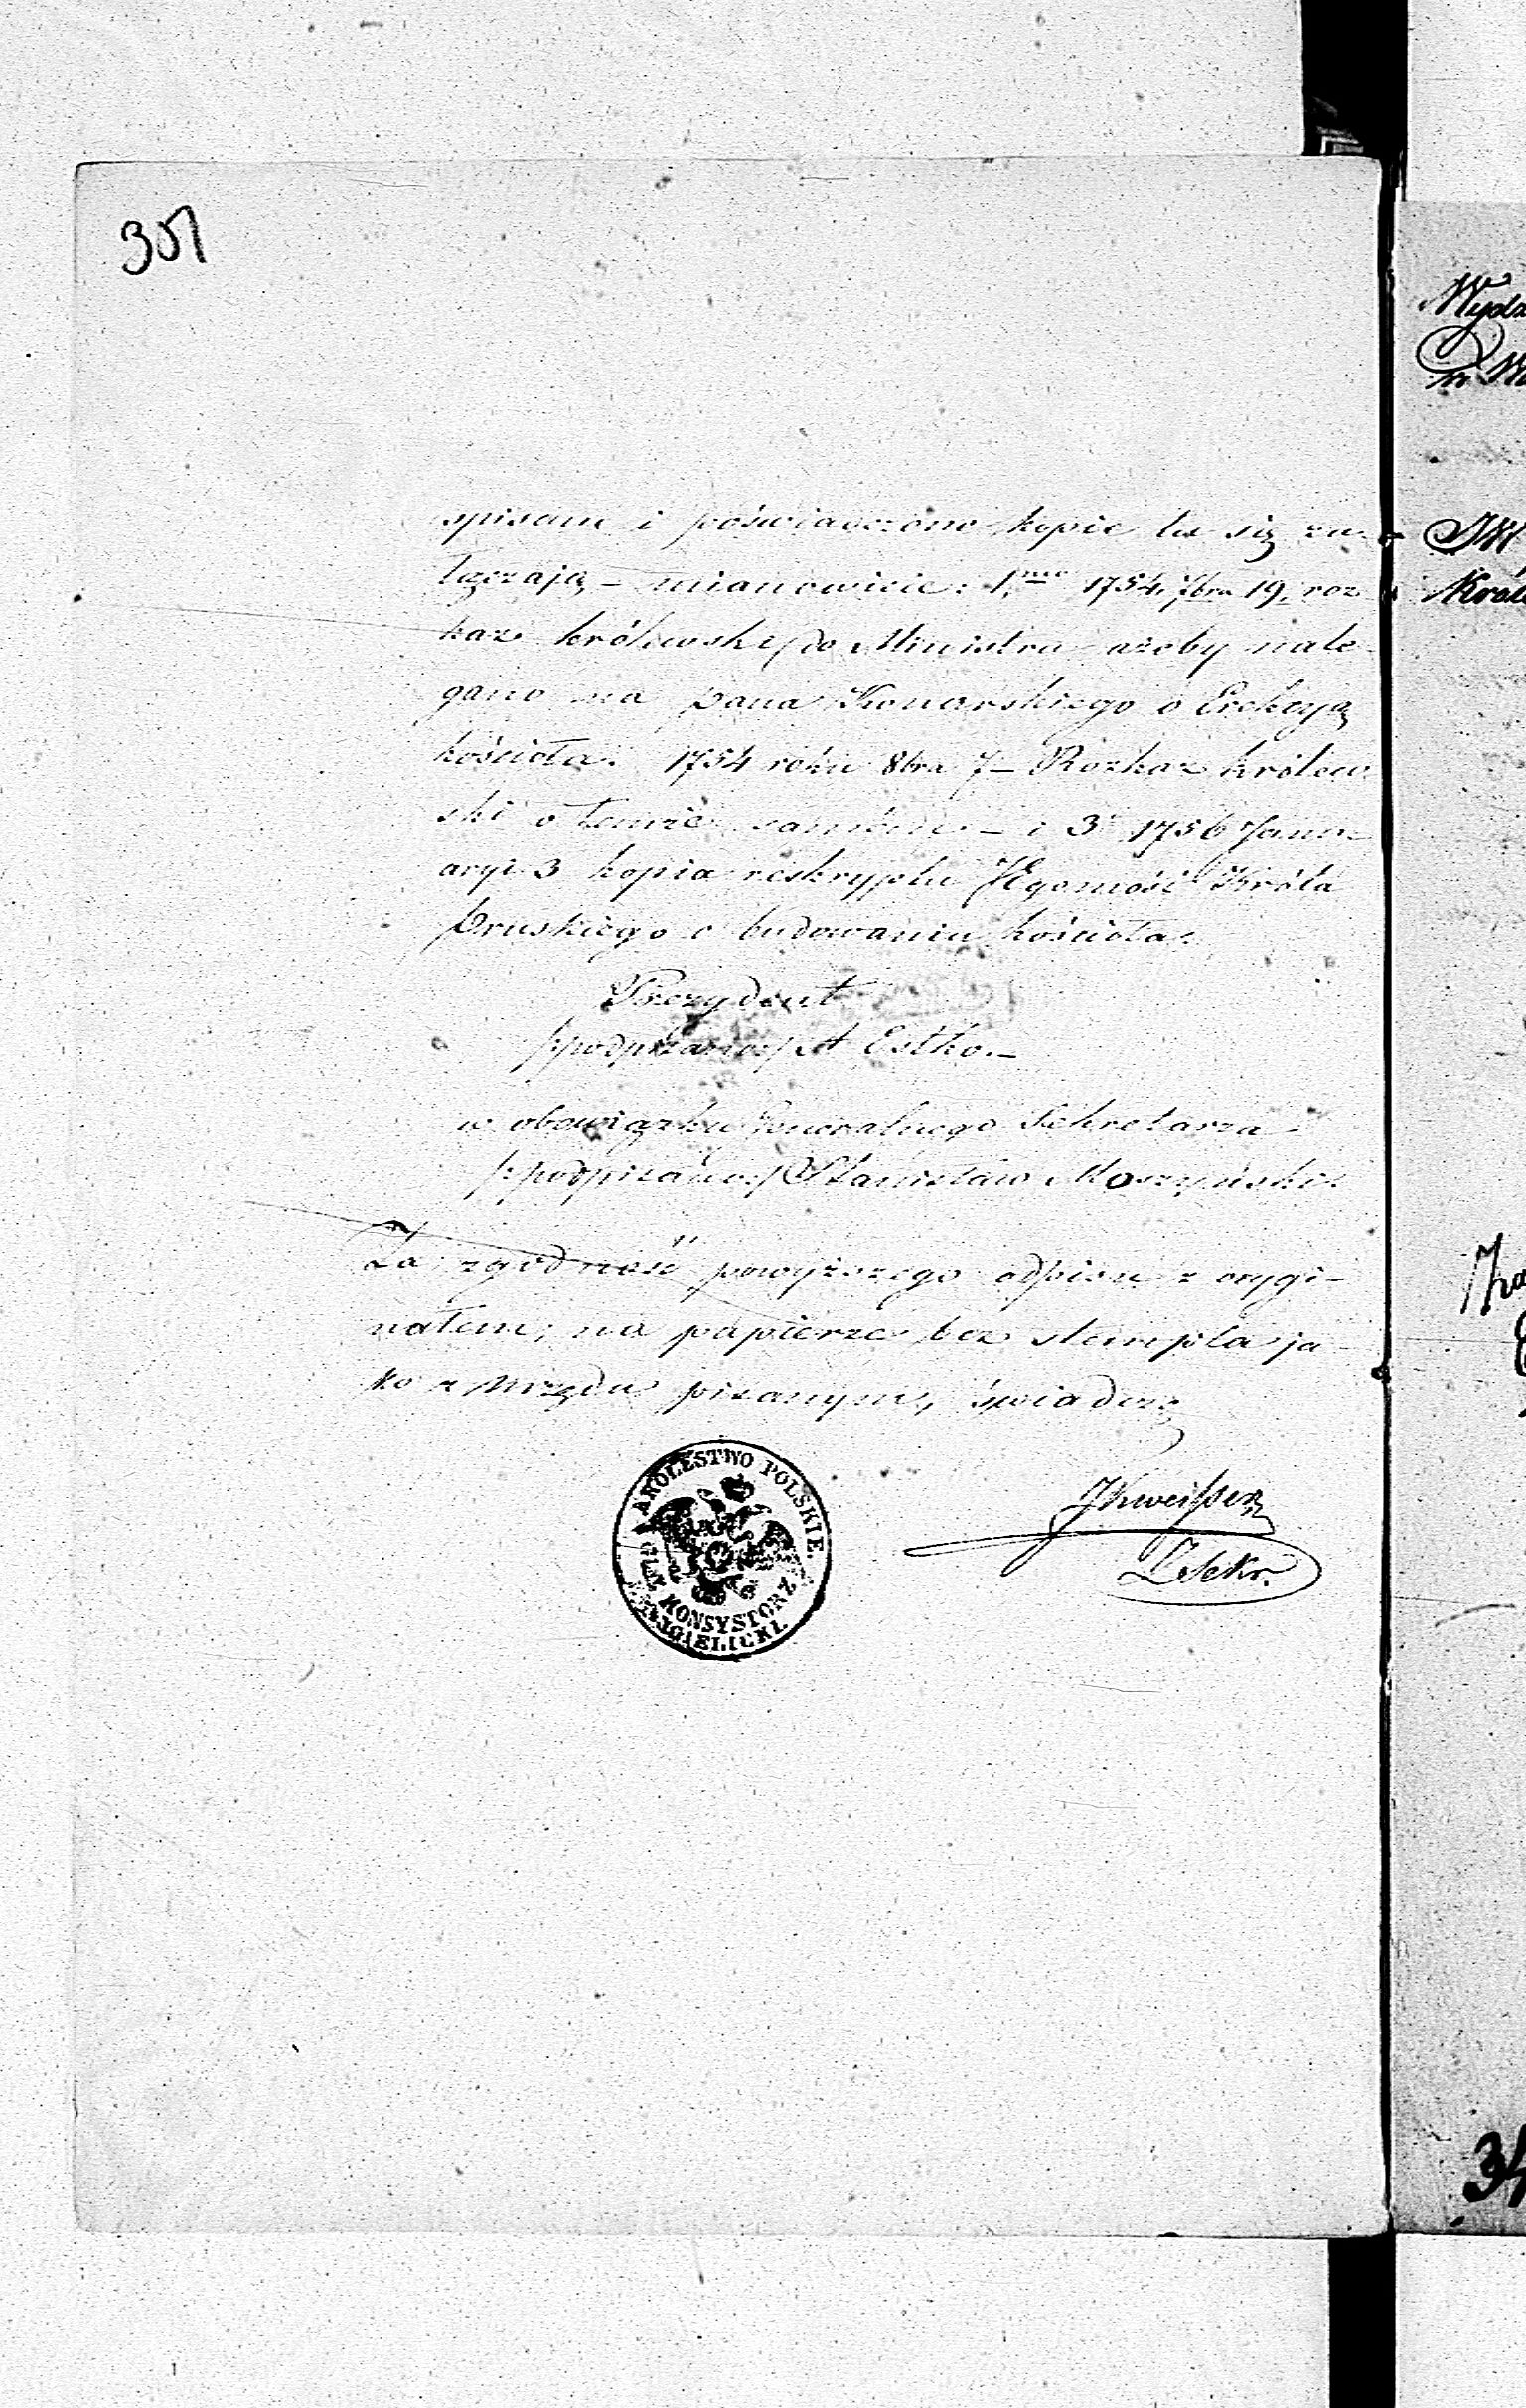 351
spisane i poświadczone kopie tu się za-
łączają – mianowicie: 1mo 1754, 7bra 19. roz
kaz królewski do Ministra ażeby nale-
gano na pana Konarskiego o Erekcyą
kościoła. 1754 roku 8bra 7 – Rozkaz królew-
ski o temże samém – i 3o 1756 Janu-
aryi 3 kopia reskryptu JEgomość Króla
Pruskiego o budowaniu kościoła.
Prezydent
/:podpisano:/ A Estko. –
w obowiązku Generalnego Sekretarza
/:podpisano:/ Stanisław Moszyński.
Za zgodność powyższego odpisu z orygi-
nałem, na papierze bez stempla ja-
ko z Urzędu pisanym, świadczę
KRÓLESTWO POLSKIE.
KONSYSTORZ
Z Sekr.
Wydz
w
JW
Król
34